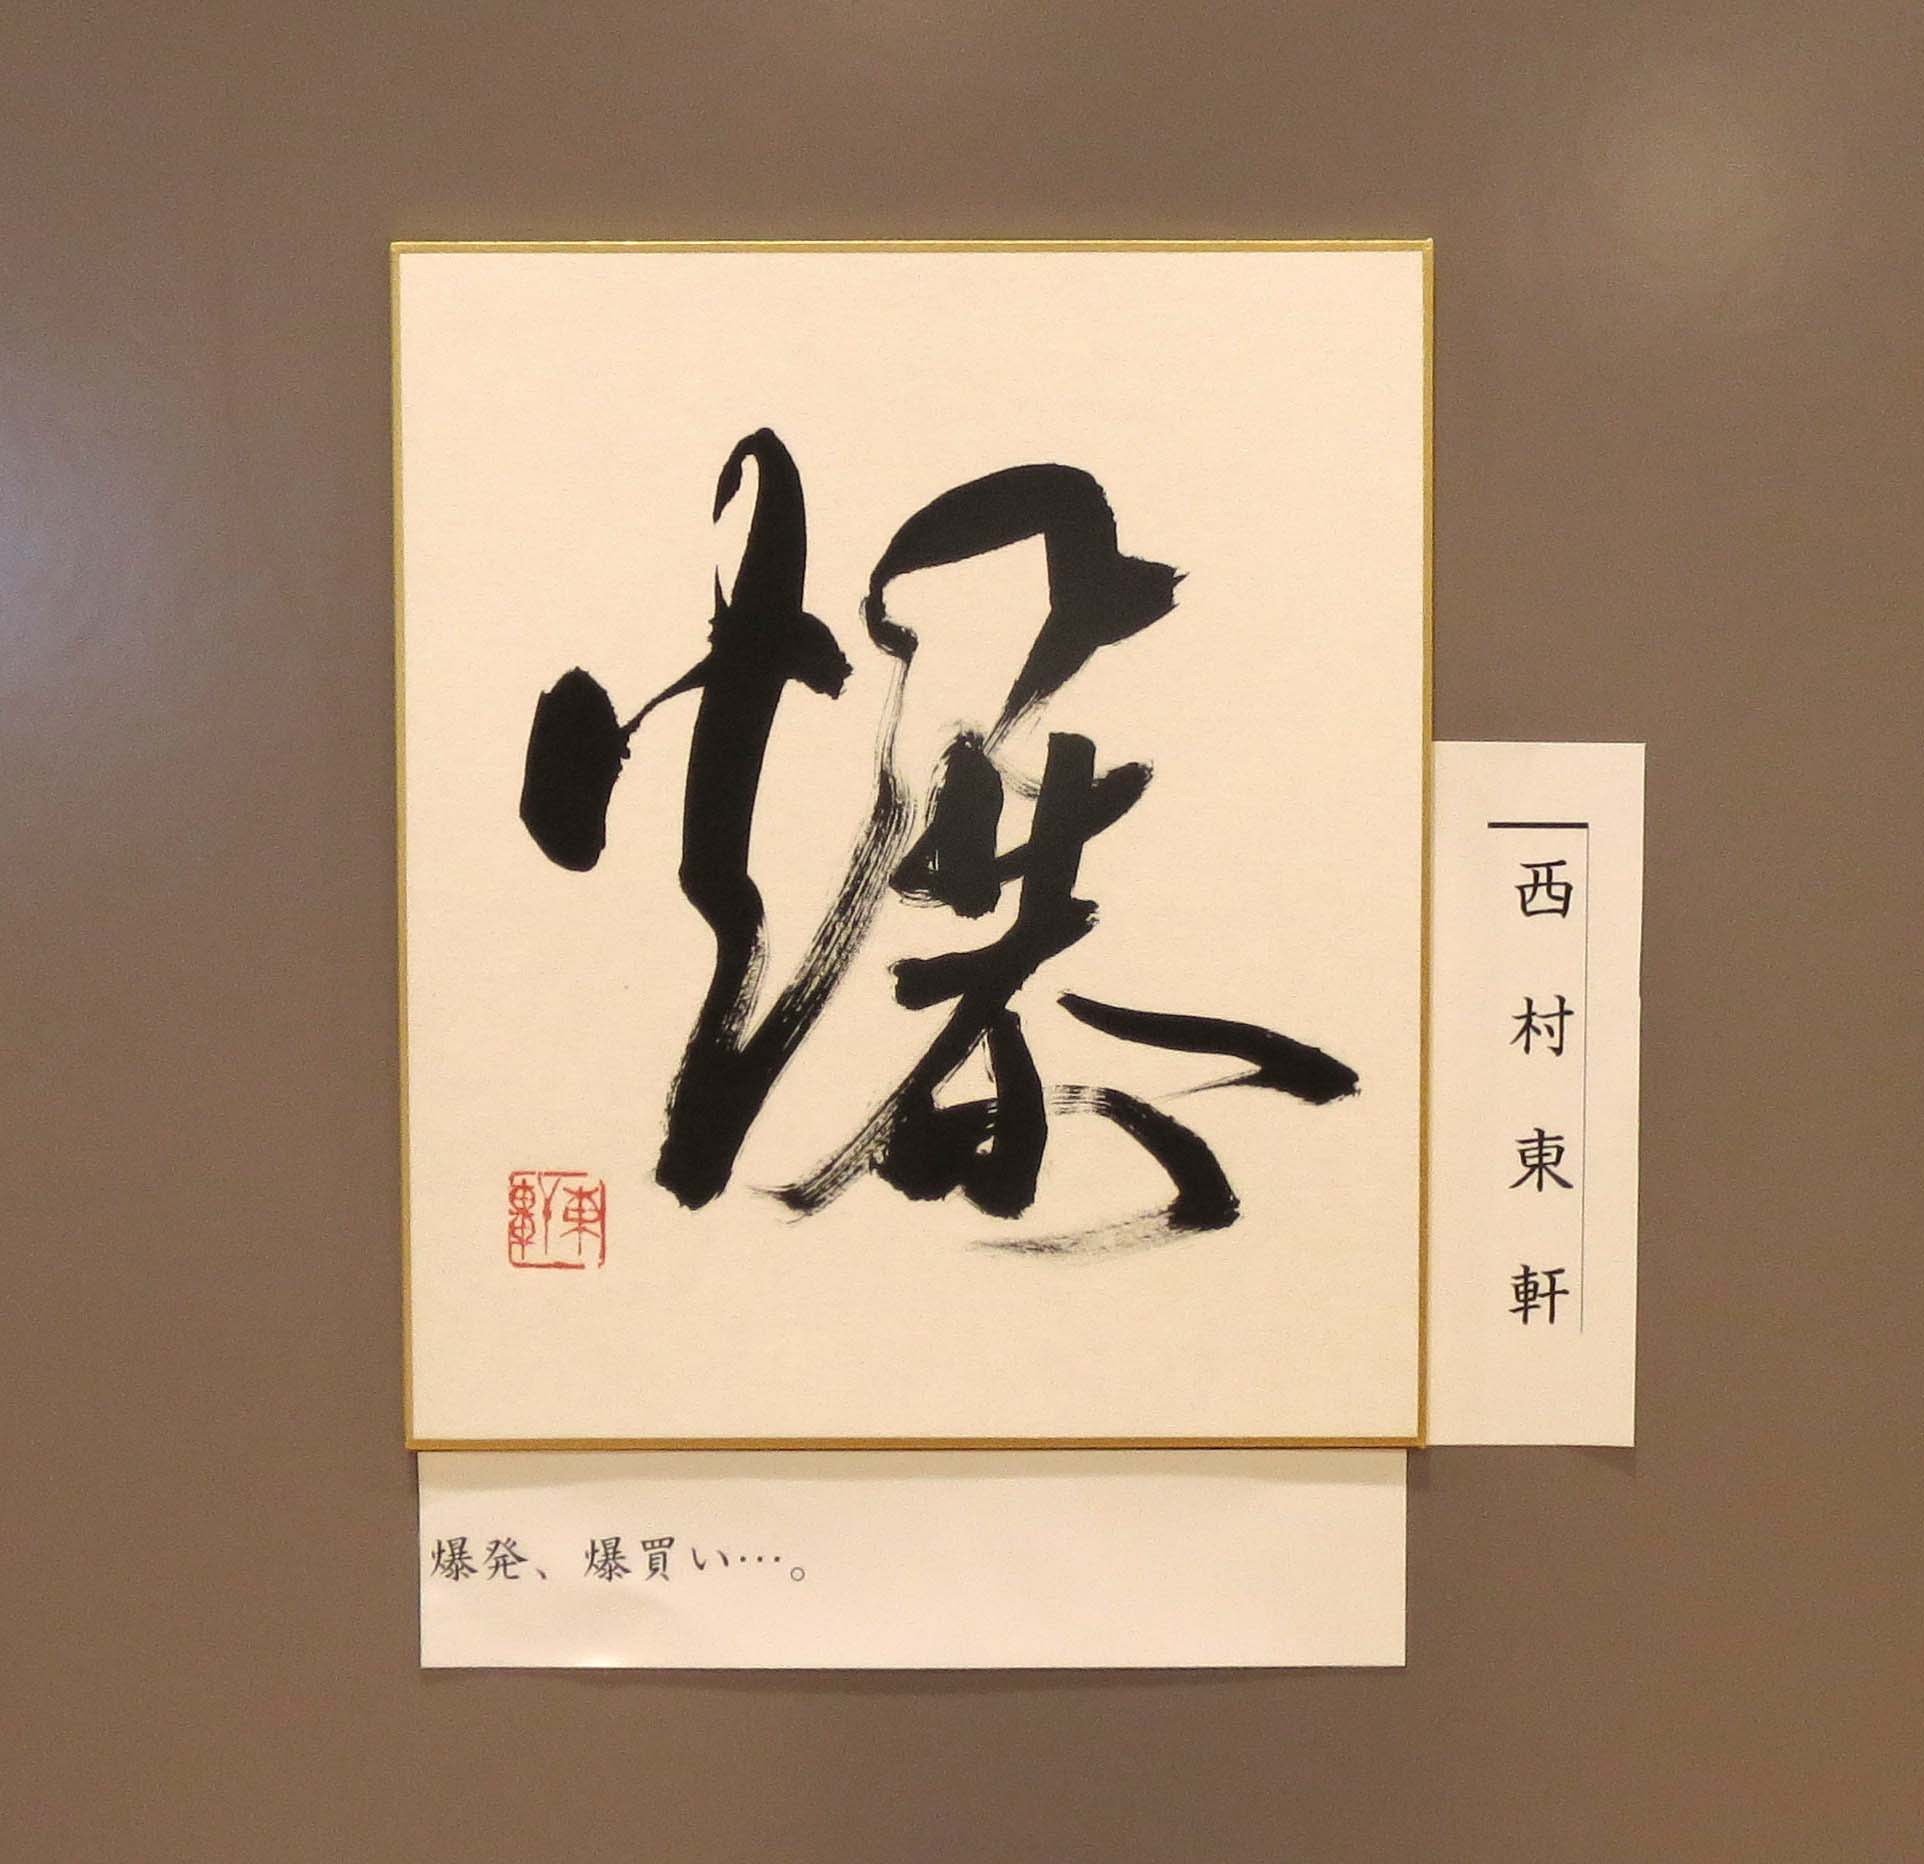 爆
西村東軒
東軒
爆発、爆買い…。